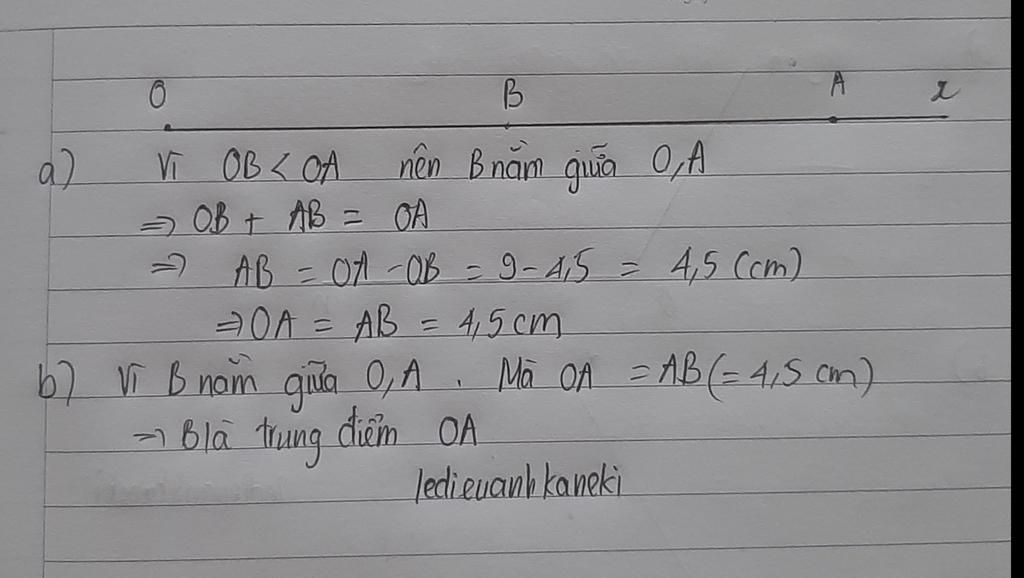 O B A x
a) Vì OB < OA nên B nằm giữa O,A
=> OB + AB = OA
=> AB = OA - OB = 9 - 4,5 = 4,5 (cm)
=> OA = AB = 4,5 cm
b) Vì B nằm giữa O,A . Mà OA = AB (= 4,5 cm)
=> B là trung điểm OA
ledieuanhkaneki